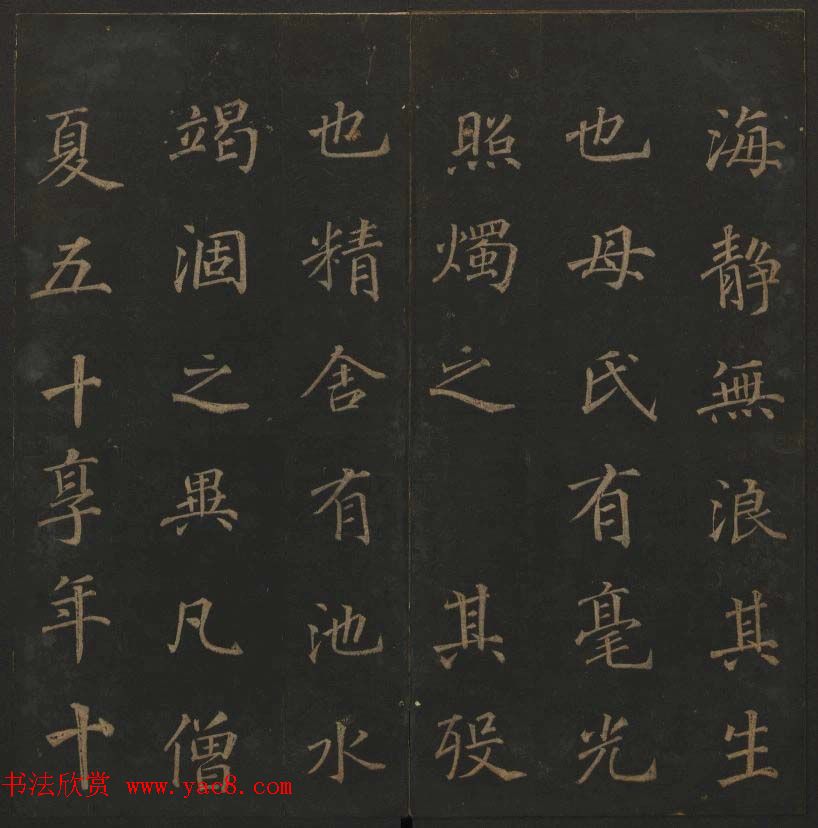 海静無浪其生
也母氏有毫光
照燭之其歿
也精舍有池水
竭涸之異凡僧
夏五十享年十
书法欣赏 www.yac8.com